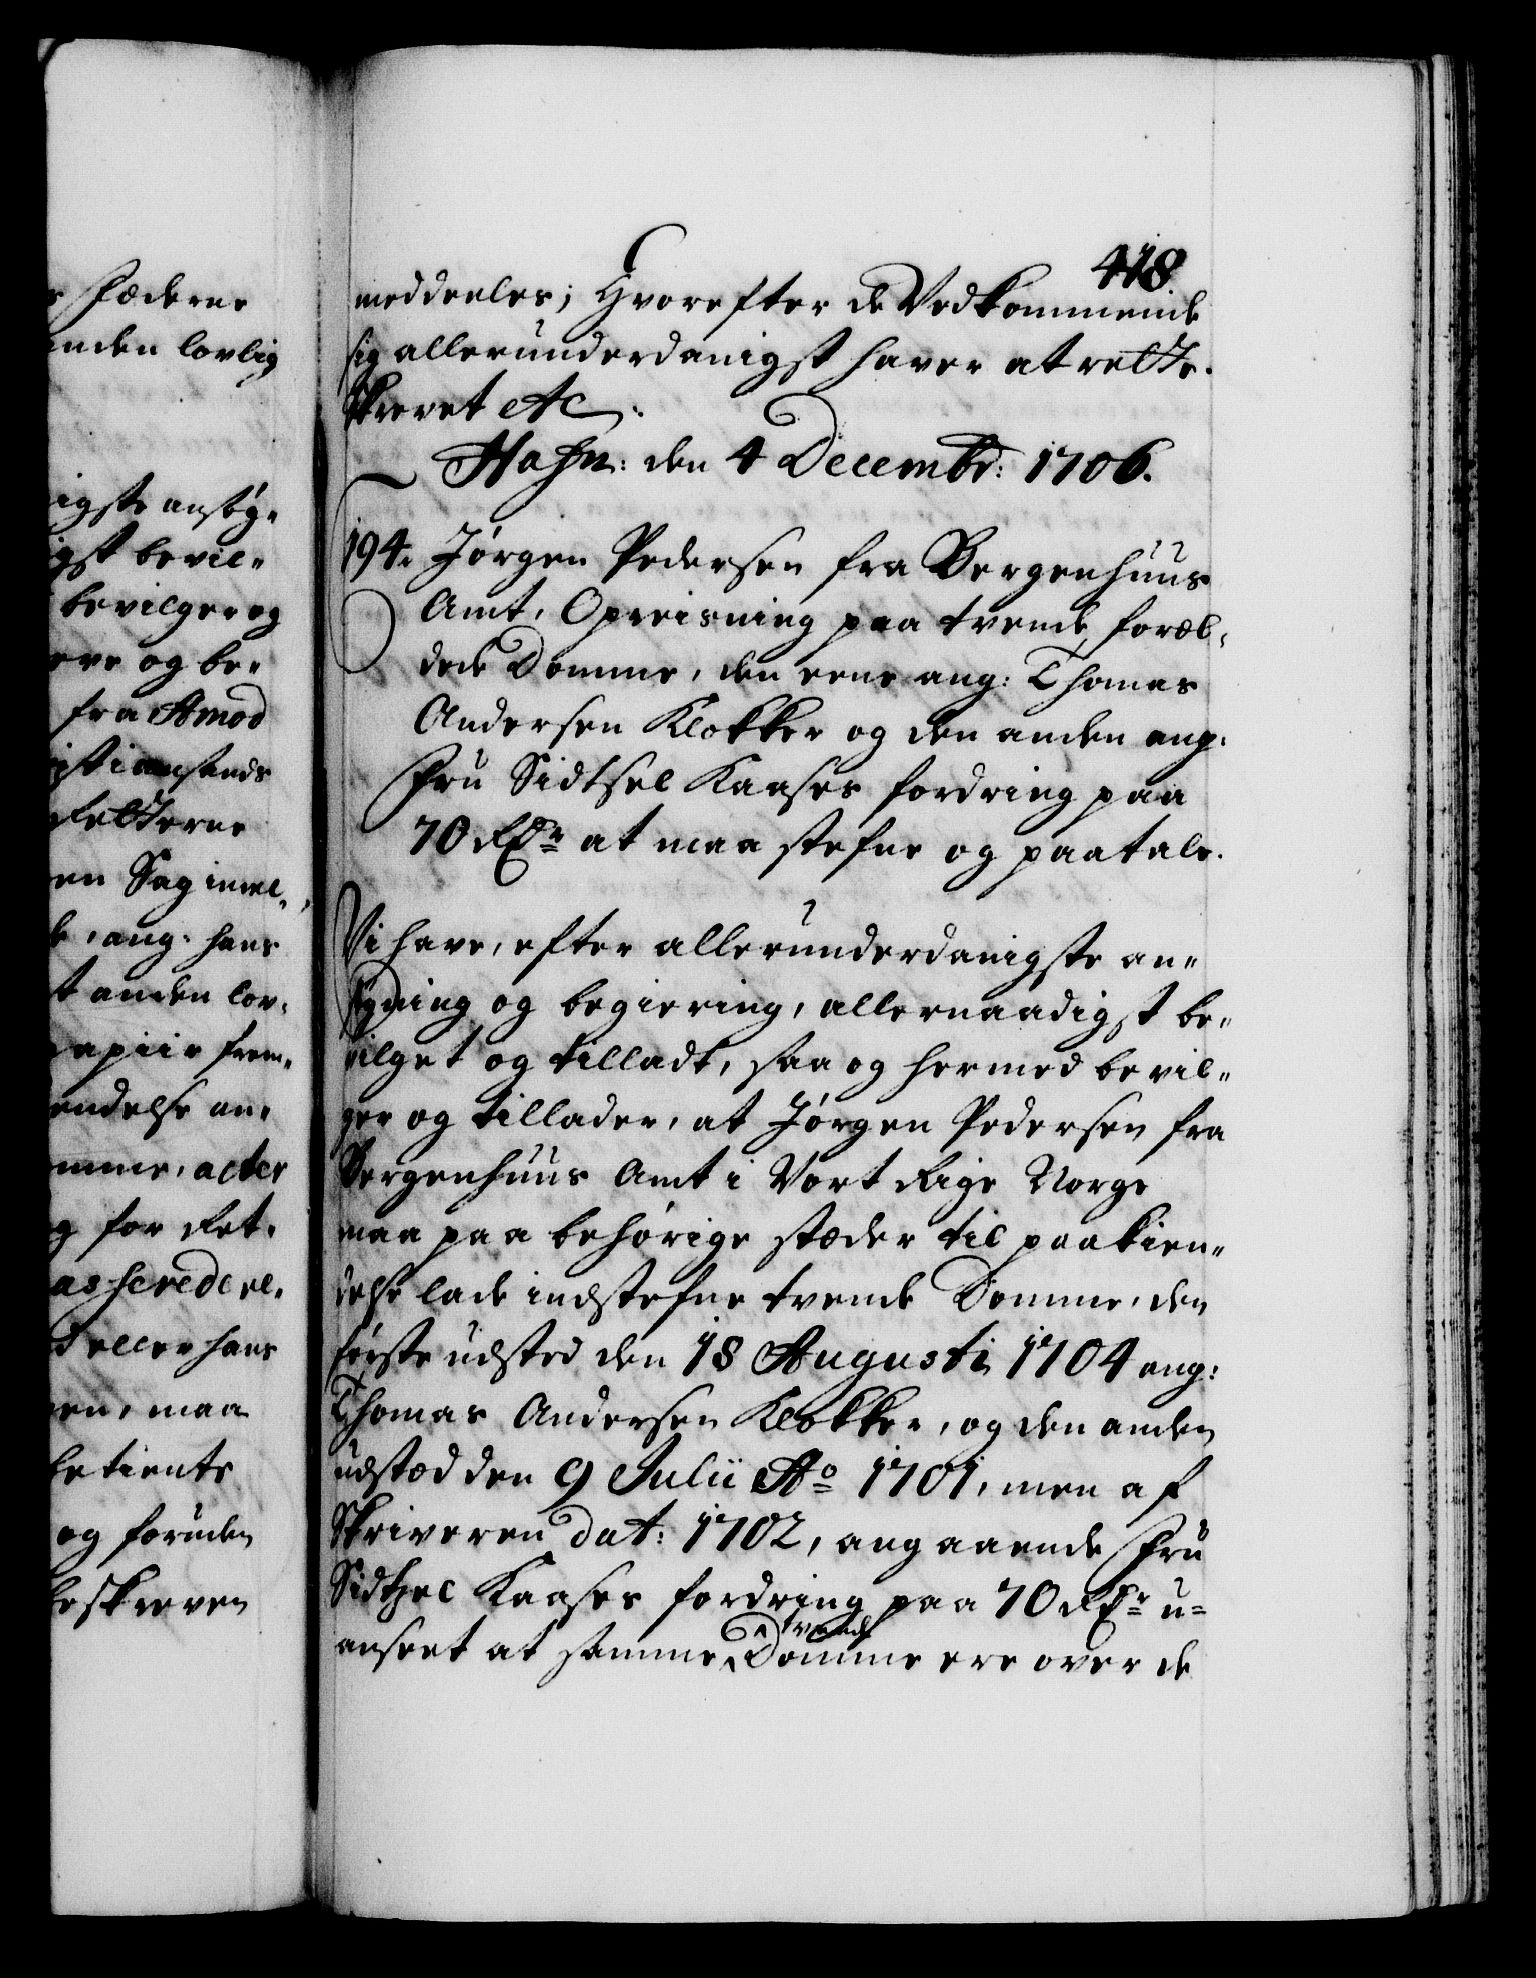 s stæderne
anden lovlig
igste ansøg-
igst bevil-
bevilger og
eve og be-
fra Amod
istiansands
Retterne
en Sag imel-
k, ang: hans
t anden lov-
papiir frem-
endelse an-
omme, acter
g for Ret-
d eller hans
en, maa
betients
og foruden
beskreven
418
meddeeles; Hvorefter de Vedkommende
sig allerunderdanigst haver at rette.
Skrevet etc.
Hafn: den 4 Decembr: 1706.
194. Jørgen Pedersen fra Bergenhuus
Amt, Opreisning paa tvende foræl-
dede Domme, den eene ang: Thomas
Andersen Klokker og den anden ang:
Fru Sidtsel Kaases fordring paa
70 Rdr at maa stefne og paatale.
Vi have, efter allerunderdanigste an-
søgning og begiering, allernaadigst be-
vilget og tilladt, saa og hermed bevil-
ger og tillader, at Jørgen Pedersen fra
Bergenhuus Amt i Vort Rige Norge
maa paa behørige stæder til paakien-
delse lade indstefne tvende Domme, den
første udsted den 18 Augusti 1704 ang:
Thomas Andersen Klokker, og den anden
udstæd den 9 Julii Ao 1701, men af
Skriveren dat: 1702, angaaende Fru
Sidtzel Kaases fordring paa 70 Rdr u-
anseet at samme tvende Domme ere over de